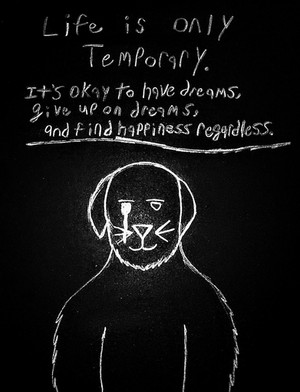 Life is only
Temporary.
It's okay to have dreams,
give up on dreams,
and find happiness regardless.